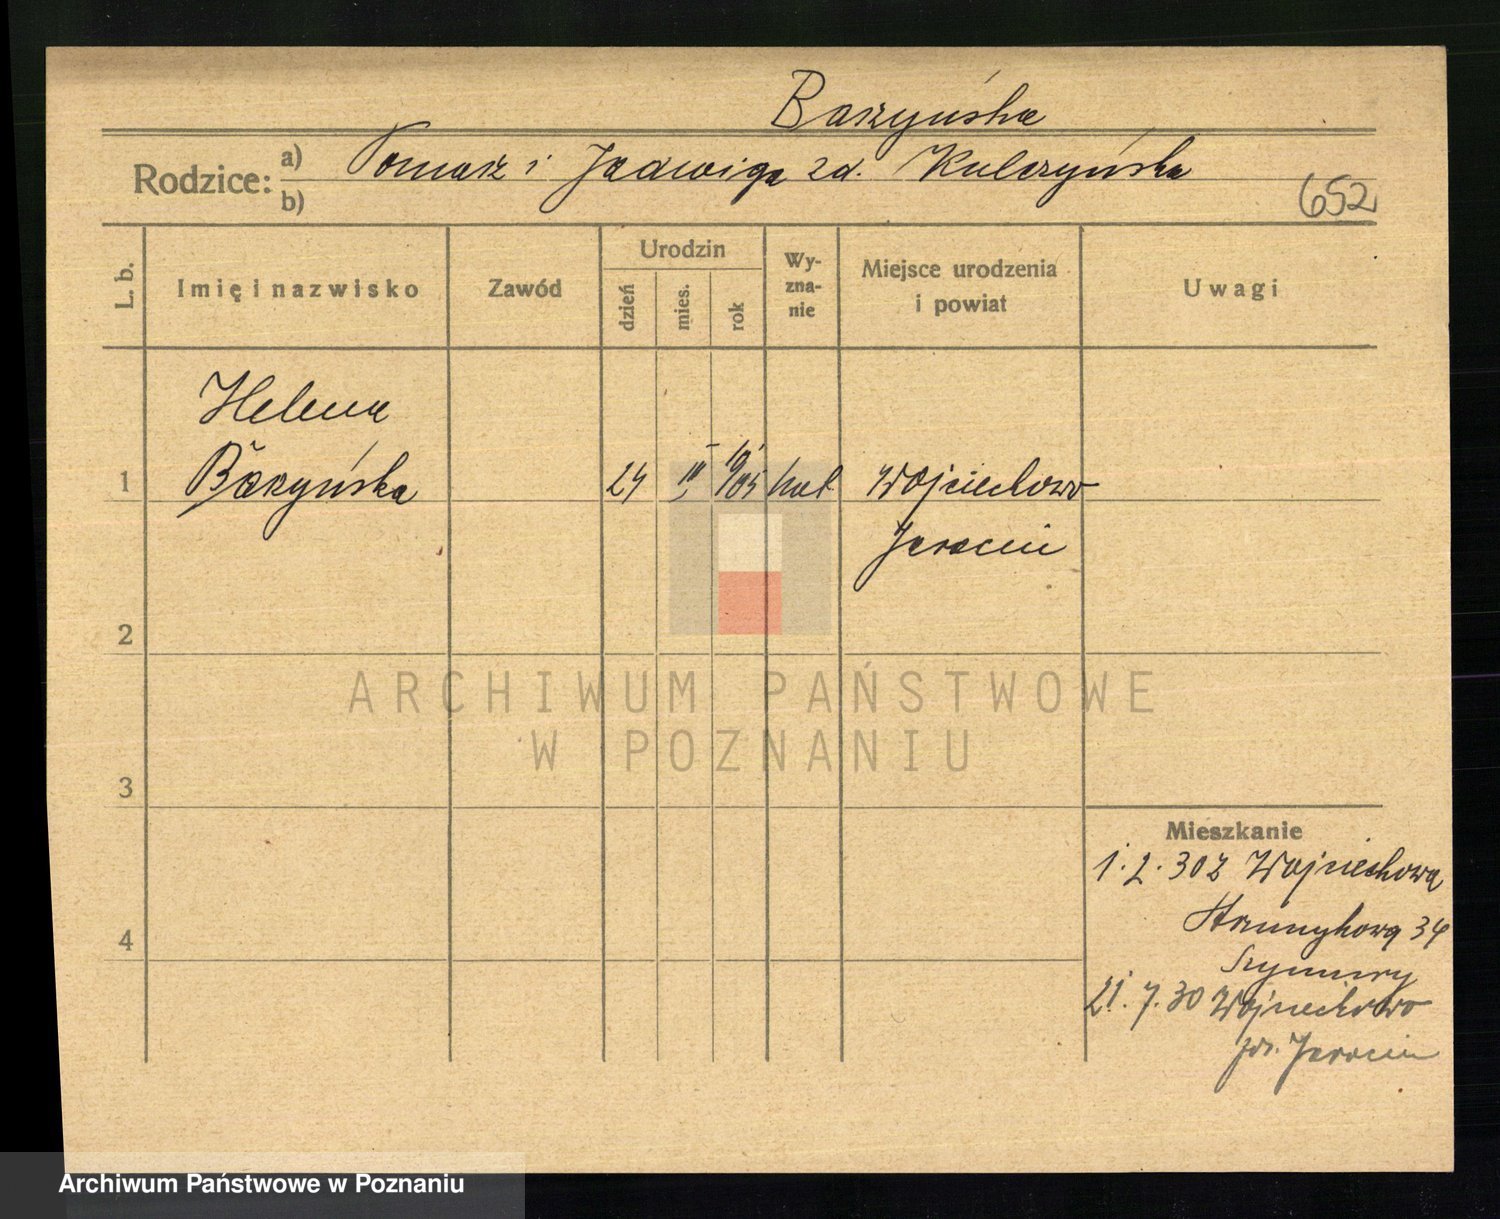 Bażyńska
Rodzice: a) Tomasz i Jadwiga zd. Kulczyńska
b)
652
L. b. Imię i nazwisko Zawód Urodzin dzień mies. rok Wyznanie Miejsce urodzenia i powiat Uwagi
Helena
1 Bażyńska 24 III 19/05 kat Wojciechowo
Jarocin
2
ARCHIWUM PAŃSTWOWE
W POZNANIU
3
Mieszkanie
1.2.30 z Wojciechowa
34
4
21.7.30 Wojciechowo
Jarocin
Archiwum Państwowe w Poznaniu